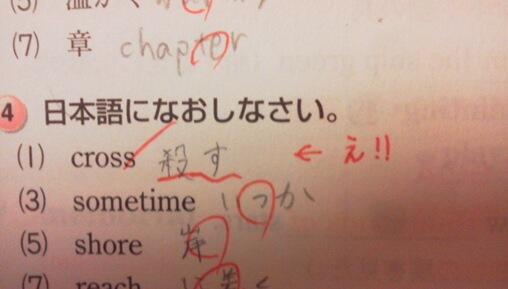 (5) 温かく
(7) 章 chapter
4 日本語になおしなさい。
(1) cross 殺す ← え!!
(3) sometime いつか
(5) shore 岸
(7) reach